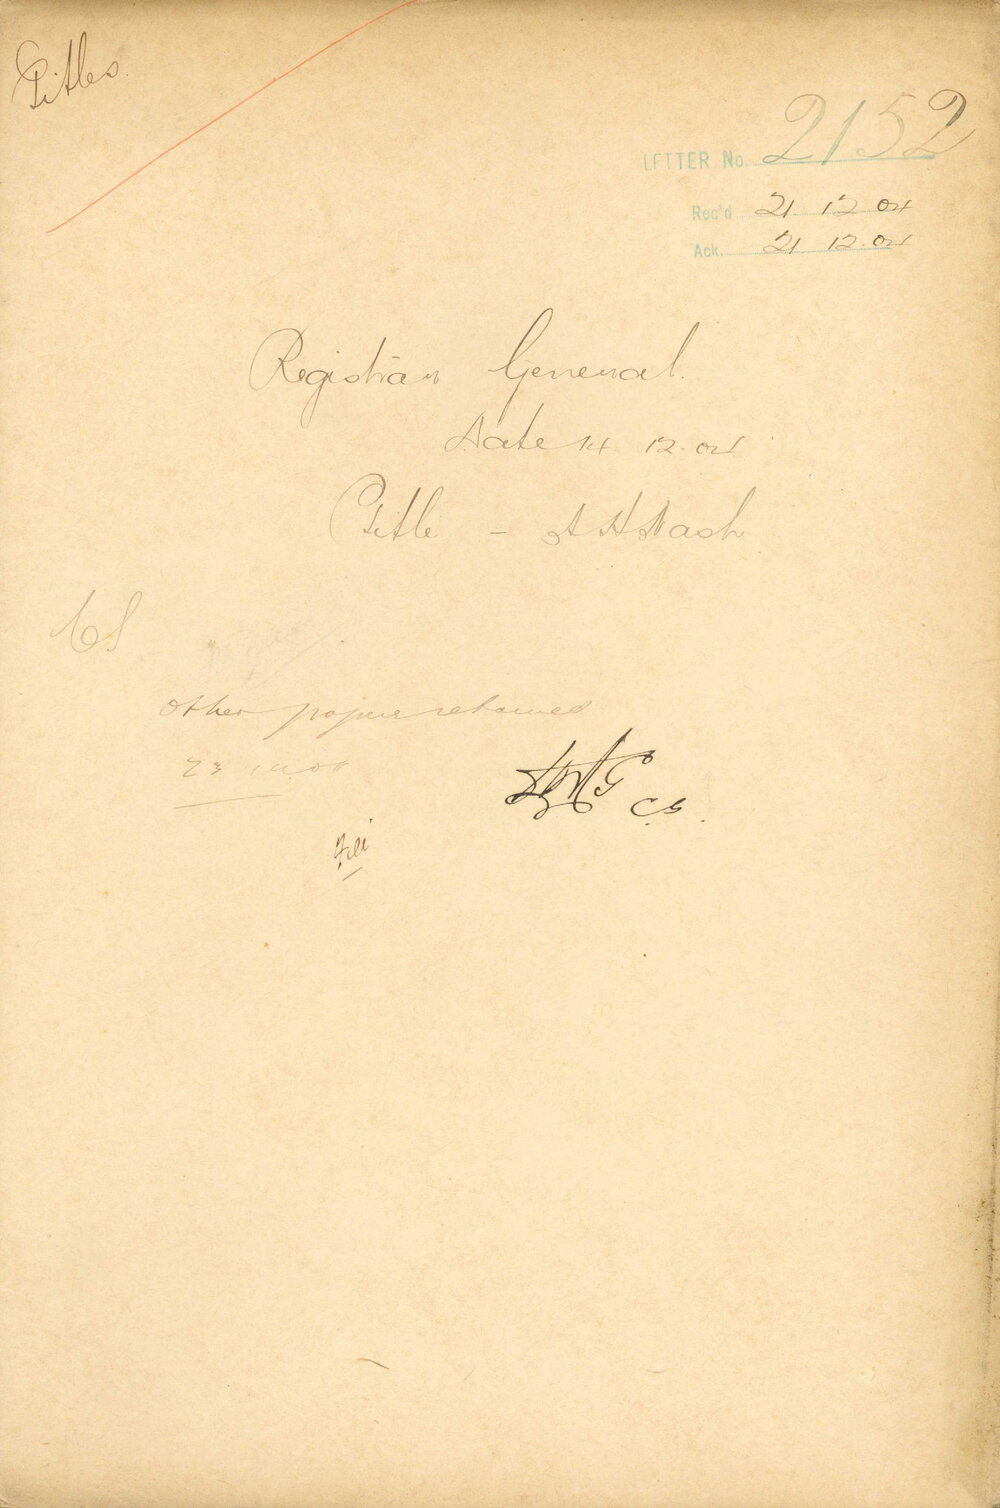 Titles.
LETTER No. 2152
Rec'd 21 12 04
Ack. 21.12.04
Registrar General.
Date 14 12.04
Title - A H Nash
CS
Other papers returned
23
C.S.
File